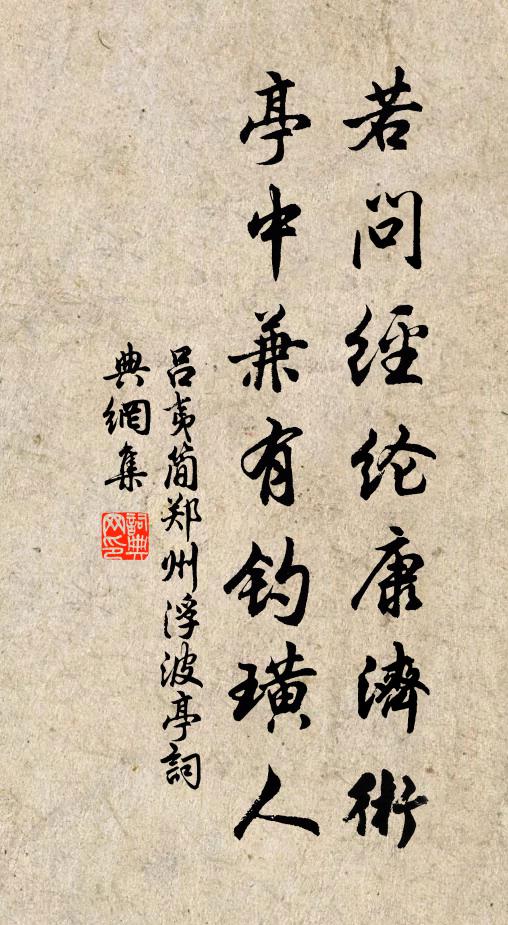 若问經纶康濟術
亭中兼有钓璜人
吕夷简郑州浮波亭詞
典網集
詞典网印